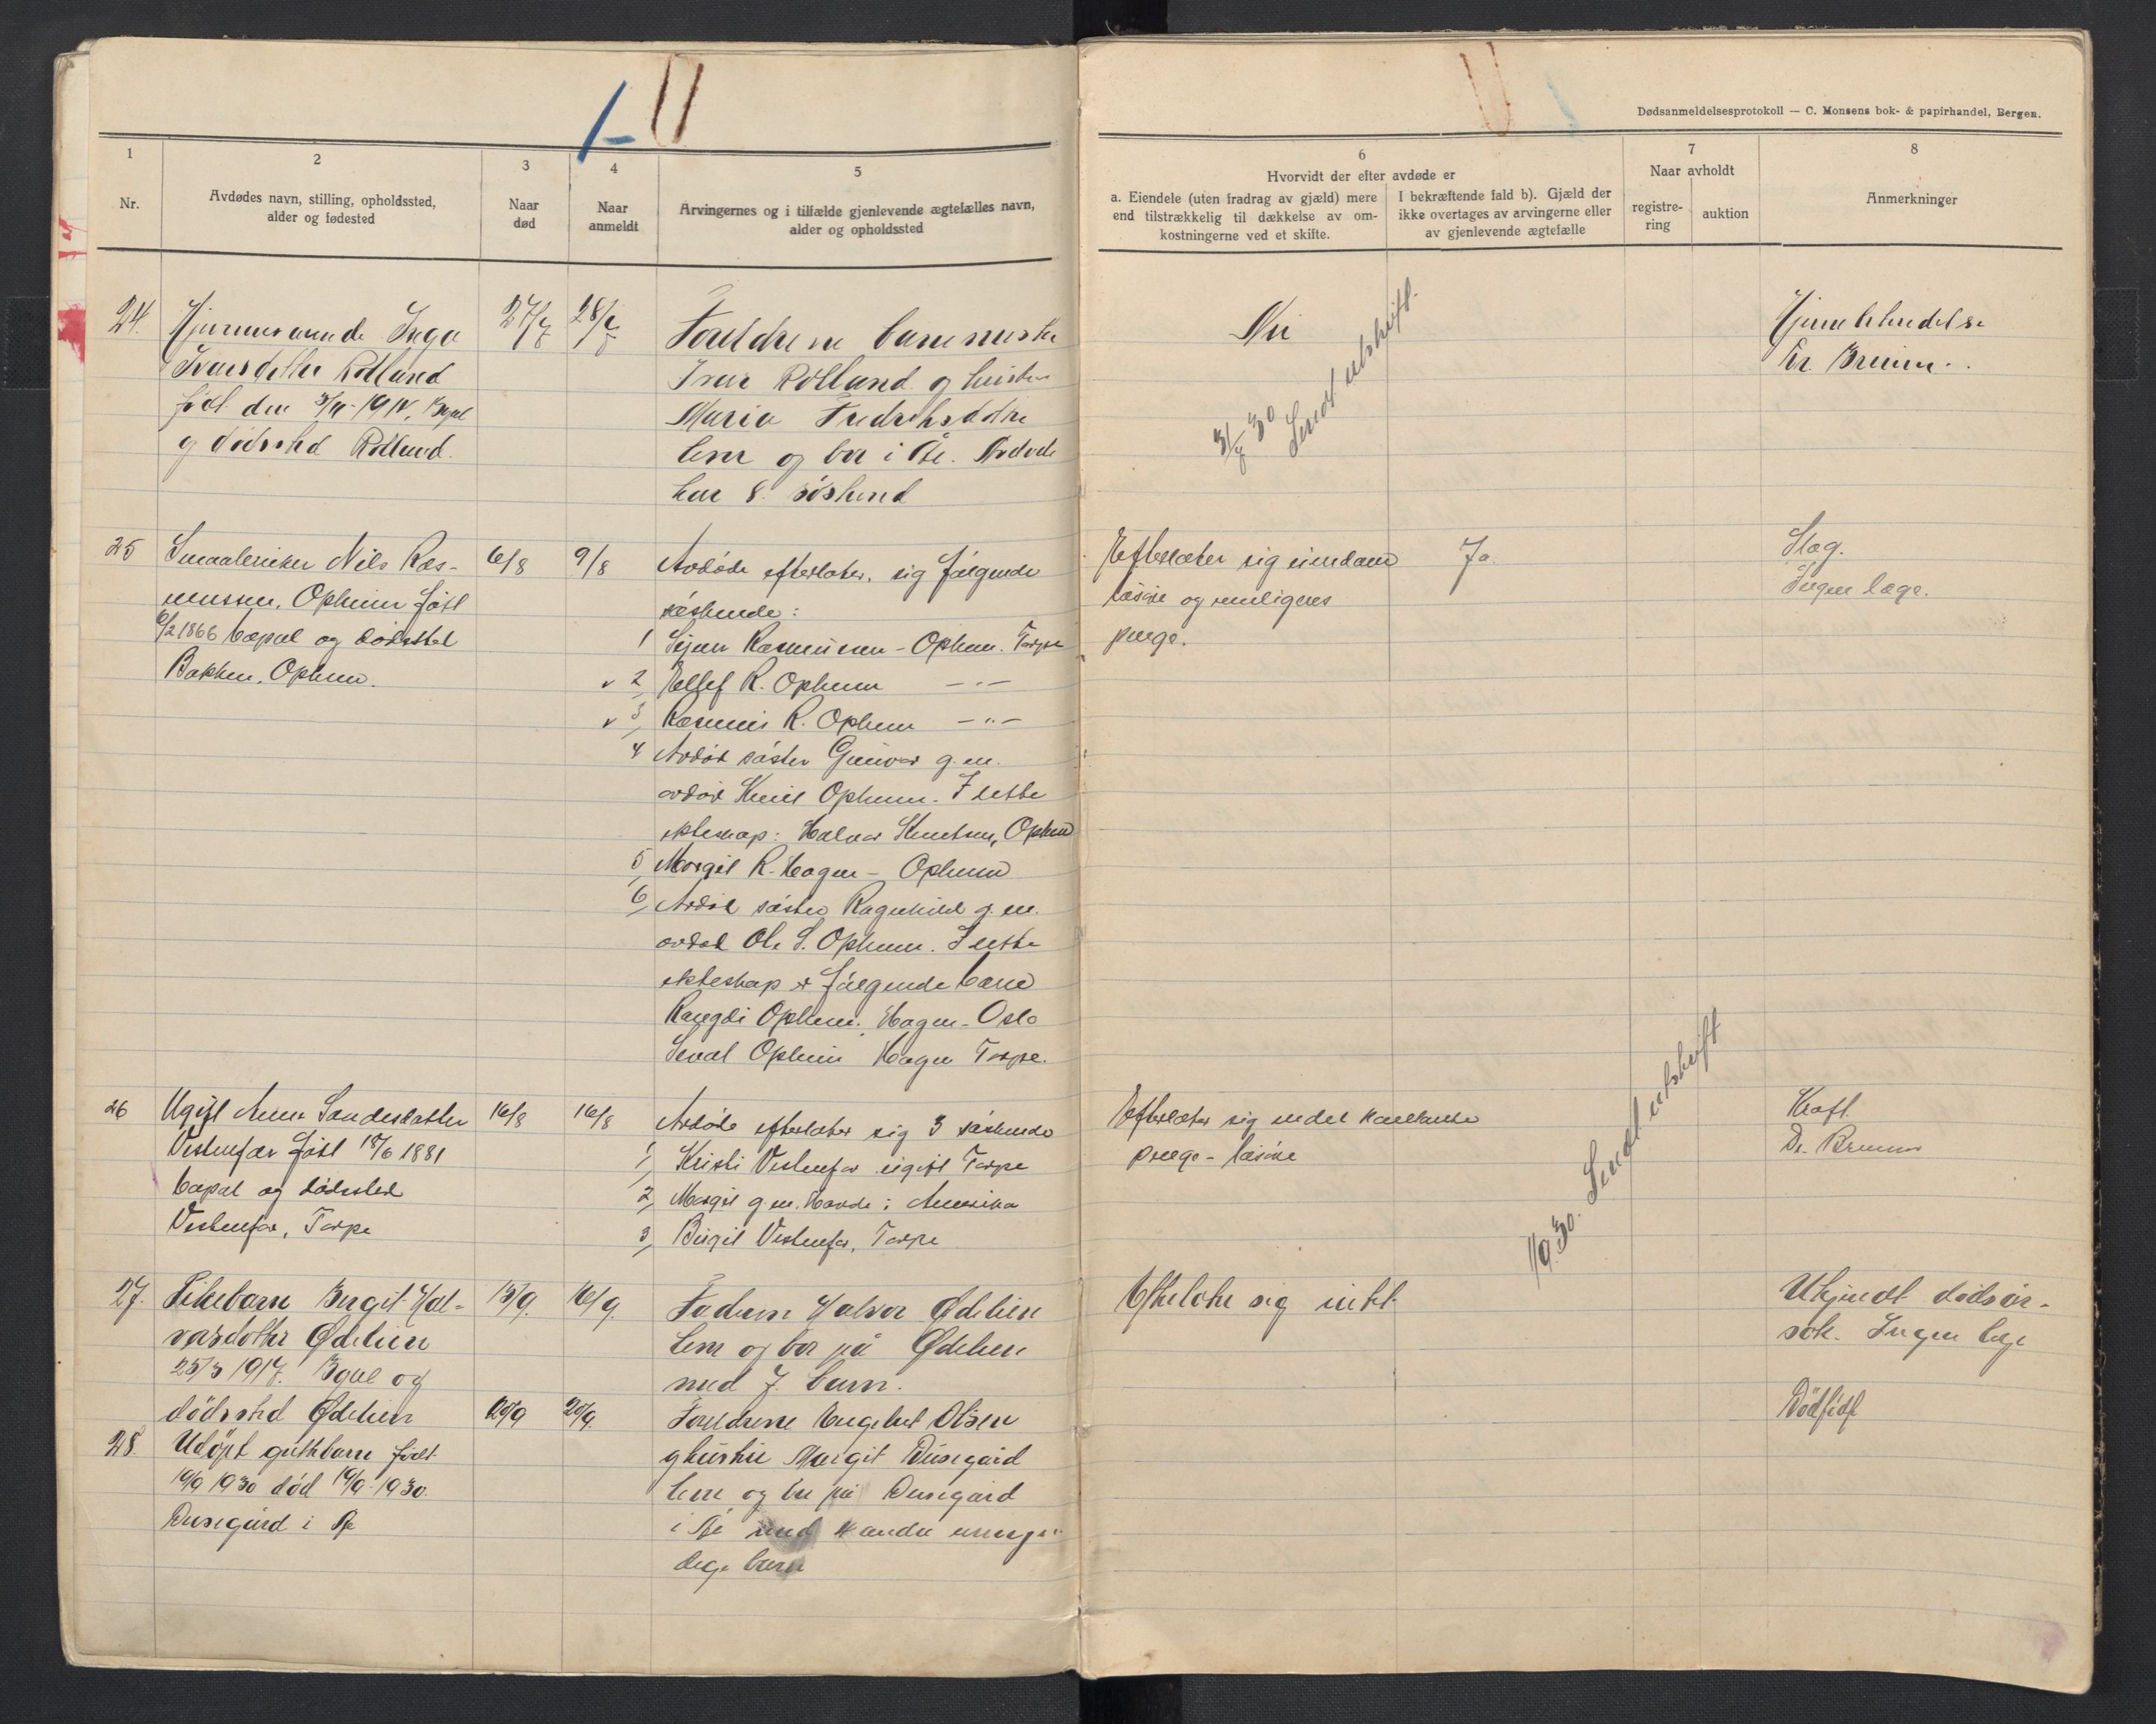 Dødsanmeldelsesprotokoll — C. Monsens bok- & papirhandel, Bergen.
1
Nr.
2
Avdødes navn, stilling, opholdssted,
alder og fødested
3
Naar
død
4
Naar
anmeldt
5
Arvingernes og i tilfælde gjenlevende ægtefælles navn,
alder og opholdssted
6
Hvorvidt der efter avdøde er
a. Eiendele (uten fradrag av gjæld) mere
end tilstrækkelig til dækkelse av om-
kostningerne ved et skifte.
I bekræftende fald b). Gjæld der
ikke overtages av arvingerne eller
av gjenlevende ægtefælle
7
Naar avholdt
registre-
ring
auktion
8
Anmerkninger
24.
Hjemmeværende Inga
Ivarsdatter Rolland
født den
og dødssted Rolland.
Foreldrene
Ivar Rolland og hustru
Maria Fredriksdotter
lever og bor i Ål. Avdøde
har 8 søskend
Nei
Sendt utskrift.
Dr. Bruun.
25
Smaabruker Nils Ras-
mussen, Opheim født
6/2 1866 bopæl og dødssted
Bakken, Opheim.
6/8
9/8
Avdøde efterlater sig følgende
søskende:
1 Rasmussen - Opheim. Torpe
2 Ellef R. Opheim — " —
3 Rasmus R. Opheim — " —
4 Avdød søster Gunvor g.m.
avdød Knut Opheim. I dette
ekteskap: Halvor Knutsen, Opheim
5 Margit R. Hagen - Opheim
6 Avdød søster Ragnhild g.m.
avdød Ole S. Opheim. I dette
ekteskap er følgende barn
Rangdi Opheim, Hagen - Oslo
Seval Opheim Hagen Torpe.
Efterlater sig eiendom
løsøre og
penge.
Ja.
Slag.
Ingen læge.
26
Ugift Anne Sandersdatter
Vestenfor født 18/6 1881
bopæl og dødssted
Vestenfor, Torpe
16/8
16/8
Avdøde efterlater sig 3 søskende
1, Kristi Vestenfor ugift Torpe
2, Margit g.m. i Amerika
3, Birgit Vestenfor, Torpe
Efterlater sig endel kontante
penge - løsøre
1/9 30. Sendt utskrift
Kræft
Dr. Bruun
27.
Pikebarn Bergit Hal-
vorsdotter Ødelien
25/3 1917. Bopel og
dødssted Ødelien
15/9.
16/9.
Faderen Halvor Ødelien
lever og bor på Ødelien
med 7 barn.
Efterlater sig intet
Ukjendt dødsår-
sak. Ingen læge
28.
Udøpt guttebarn født
19/9 1930 død 19/9 1930.
i Ål
20/9
20/9.
Foreldrene Engebret Olsen
og hustru Margit
lever og bor på
i Ål med
dige barn
Dødfødt